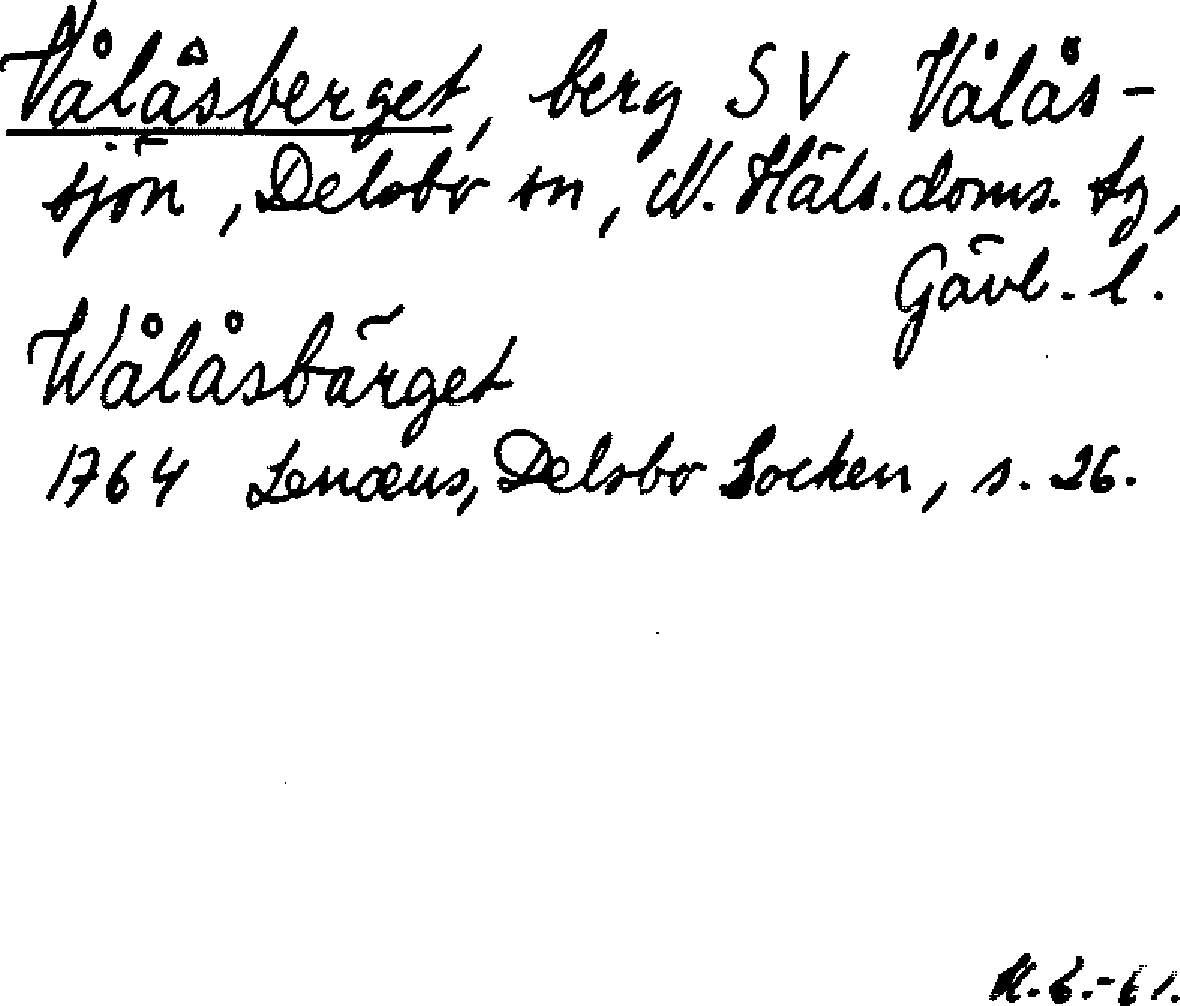 Vålåsberget, berg SV Vålås-
sjön, Delsbo sn, N. Häls. doms. tg,
Gävl. l.
Wålåsbärget
1764 Lenæus, Delsbo Socken, s. 26.